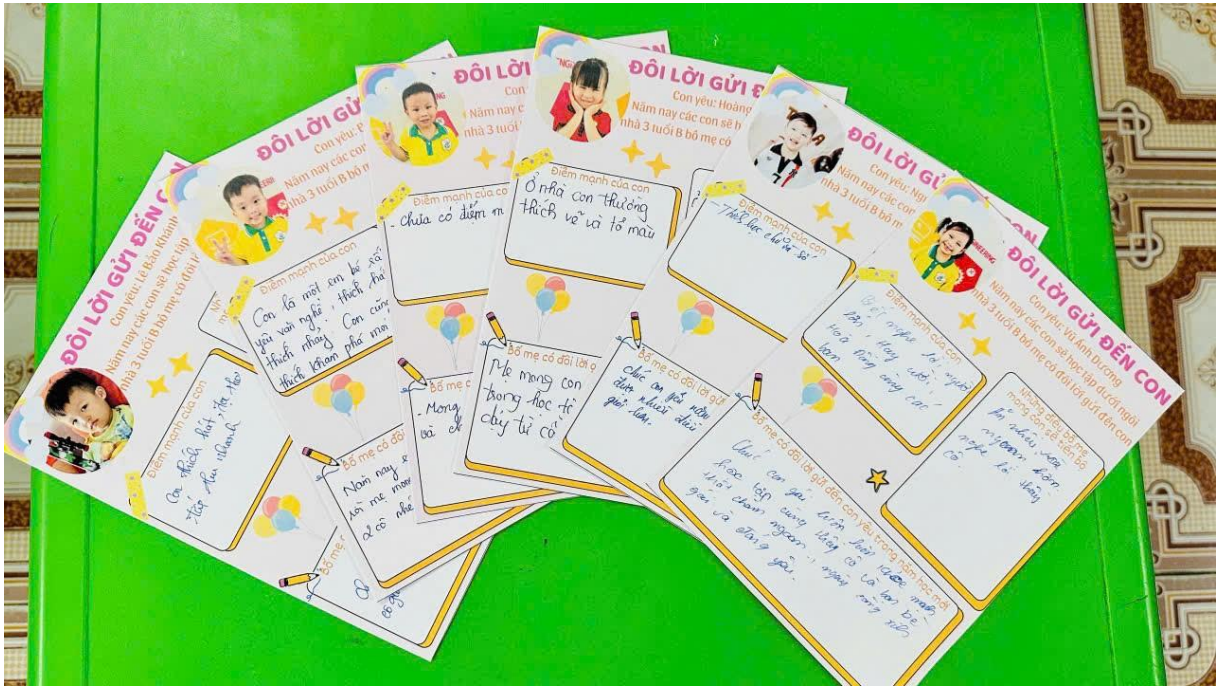 ĐÔI LỜI GỬI ĐẾN CON
Con yêu: Lê Bảo Khánh
Năm nay các con sẽ học tập
nhà 3 tuổi B bố mẹ có đôi lời
Điểm mạnh của con
Con thích hát, đọc thơ
tiếp thu nhanh
Bố mẹ c
ĐÔI LỜI GỬ
Con yêu:
Năm nay các con
nhà 3 tuổi B bố m
Điểm mạnh của con
Con là một em bé
yêu văn nghệ, thích
thích nhảy. Con cũng
thích khám phá
Bố mẹ có đôi
Năm nay
2 cô nhé
ĐÔI LỜI
Con
Năm nay c
nhà 3 tuổi
Điểm mạnh của co
- Chưa có điểm m
Bố mẹ c
- Mong
và
ĐÔI LỜI GỬI Đ
Con yêu: Hoàng
Năm nay các con sẽ h
nhà 3 tuổi B bố mẹ có
Điểm mạnh của con
Ở nhà con thường
thích vẽ và tô màu
Bố mẹ có đôi lời g
Mẹ mong con
trong học tậ
dạy từ cô
ĐÔI LỜI GỬ
Con yêu: Ng
Năm nay các con
nhà 3 tuổi B bố m
Điểm mạnh của con
Bố mẹ có đôi lời gửi
Chúc con gái năm
được nhiều điều
giỏi hơn.
ĐÔI LỜI GỬI ĐẾN CON
Con yêu: Vũ Ánh Dương
Năm nay các con sẽ học tập dưới ngôi
nhà 3 tuổi B bố mẹ có đôi lời gửi đến con
Điểm mạnh của con
Biết nghe lời người
lớn. Hay cười,
Hoà đồng cùng các
bạn
Những điều bố mẹ
mong con sẽ tiến bộ
Ăn nhiều
ngoan hơn
nghe lời thầy
cô.
Bố mẹ có đôi lời gửi đến con yêu trong năm học mới
Chúc con gái luôn luôn khoẻ mạnh
học tập cùng thầy cô và bạn bè
thật chăm ngoan, ngày càng xinh
gái và đáng yêu.